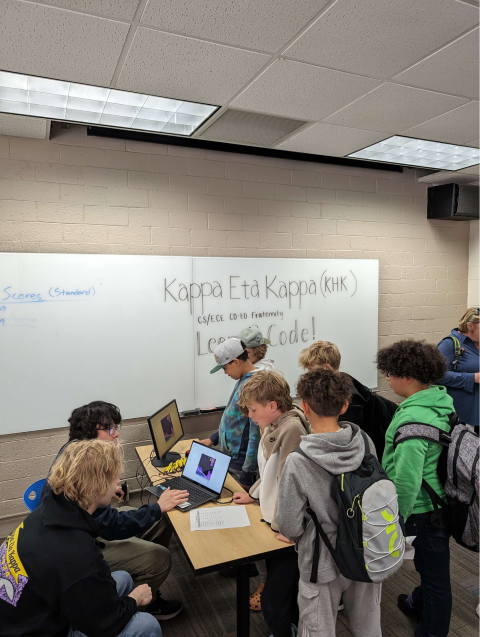 Scores (Standard)
Kappa Eta Kappa (KHK)
CS/ECE CO-ED Fraternity
Code!